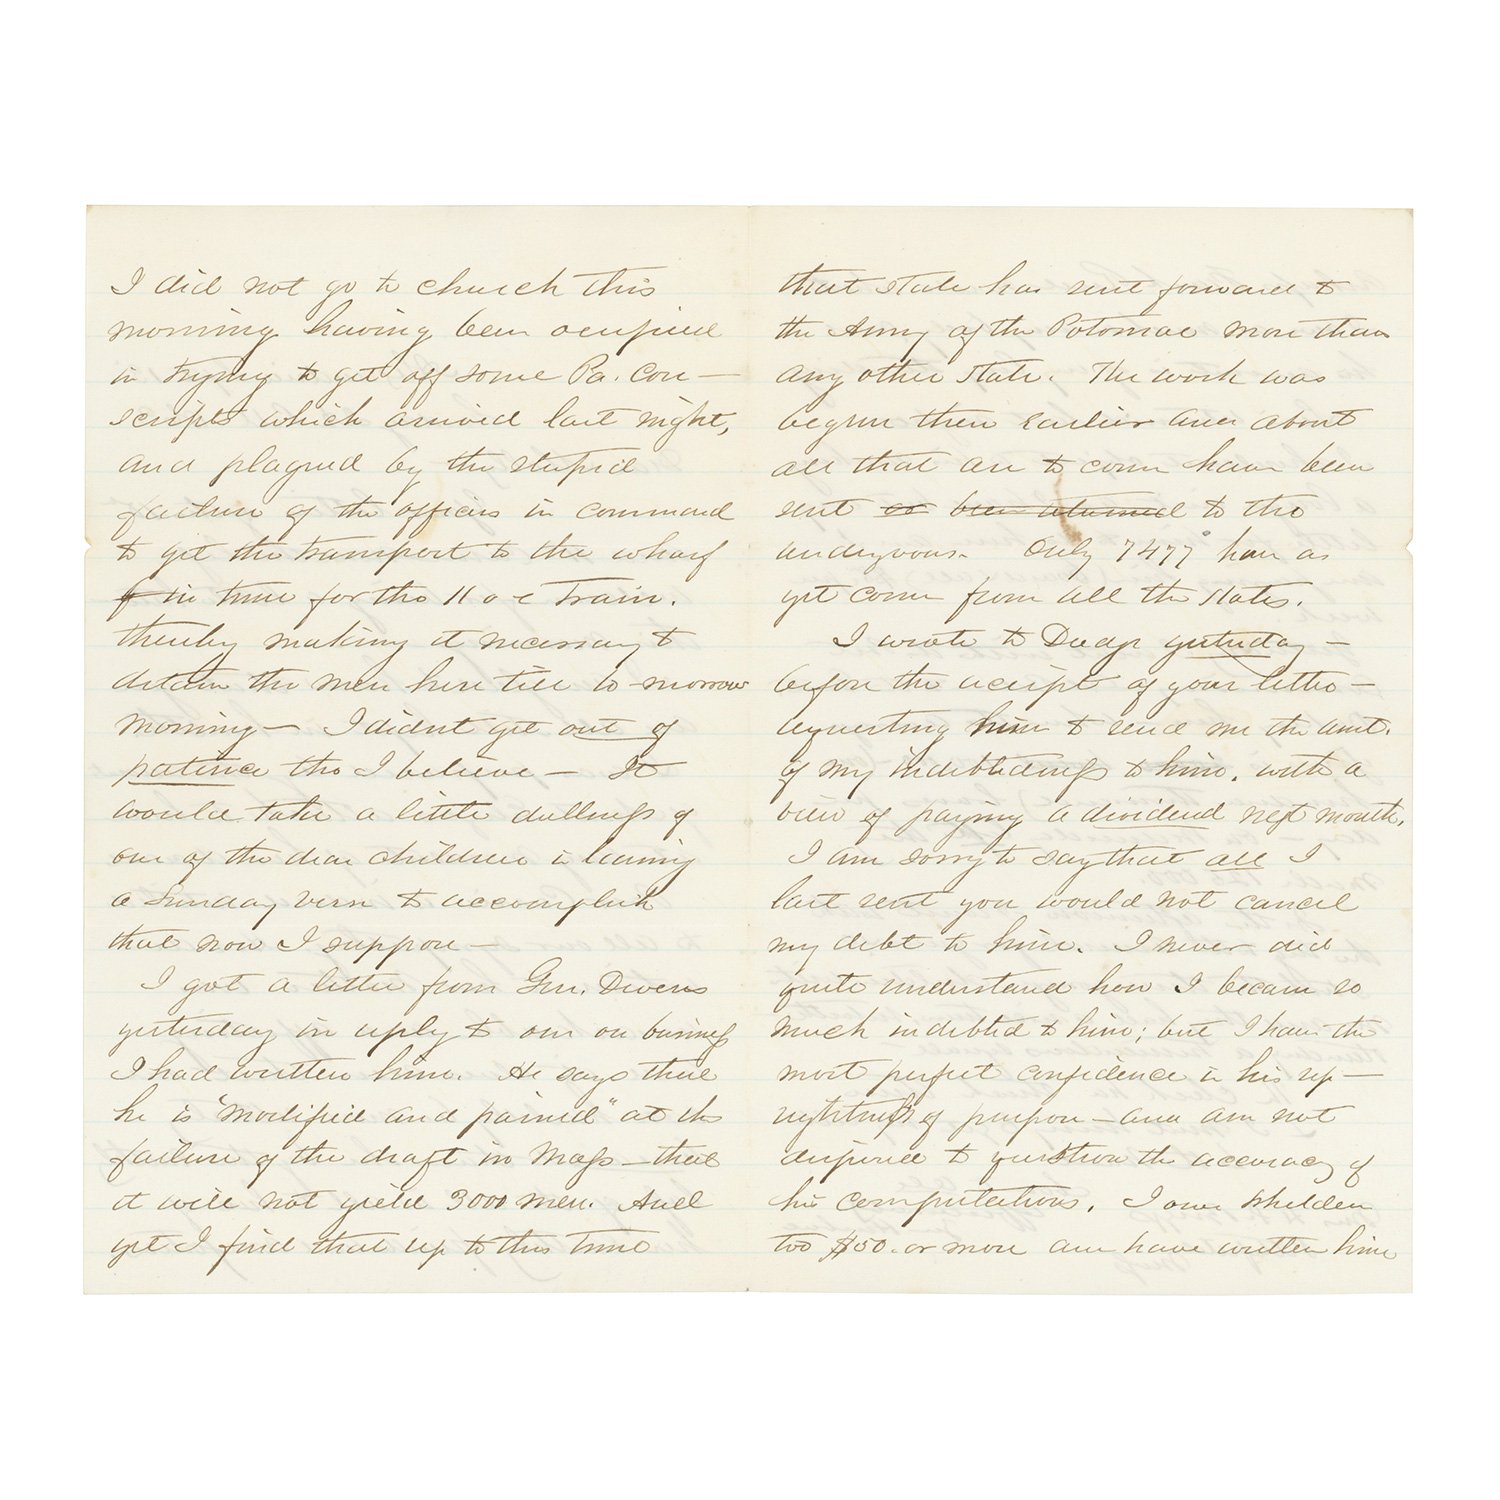 I did not go to church this
morning having been occupied
in trying to get off some Pa. Con-
scripts which arrived last night,
and plagued by the stupid
failure of the officers in command
to get the transport to the wharf
in time for the 11 o c Train.
thereby making it necessary to
detain the men here till to-morrow
morning — I didn't get out of
patience tho I believe — It
would take a little dullness of
one of the dear children in learning
a Sunday verse to accomplish
that now I suppose —
I got a letter from Gen. Devens
yesterday in reply to one on business
I had written him. He says there
he is "mortified and pained" at the
failure of the draft in Mass — that
it will not yield 3000 men. And
yet I find that up to this time
that state has sent forward to
the Army of the Potomac more than
any other state. The work was
begun then earlier and about
all that are to come have been
sent or been returned to the
rendezvous. Only 7477 have as
yet come from all the states.
I wrote to Dodge yesterday —
before the receipt of your letter —
requesting him to send me the amt.
of my indebtedness to him, with a
view of paying a dividend next month.
I am sorry to say that all I
last sent you would not cancel
my debt to him. I never did
quite understand how I became so
much indebted to him; but I have the
most perfect confidence in his up-
rightness of purpose — and am not
disposed to question the accuracy of
his computations. I owe Shelden
too $50. or more and have written him